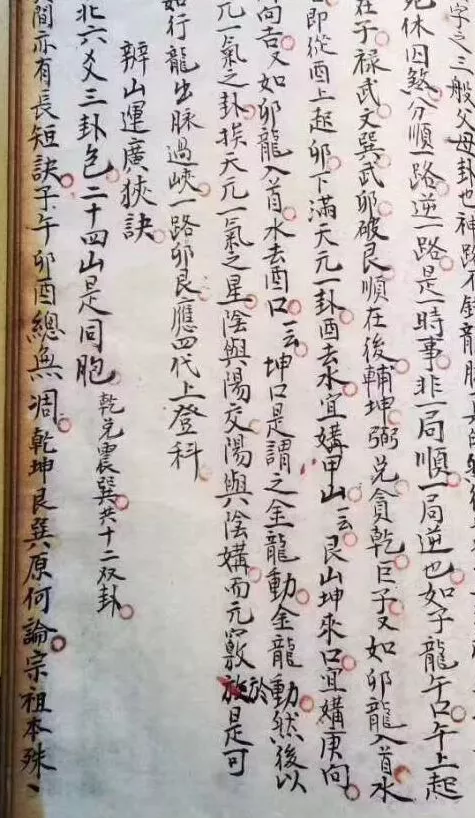 字之三般父母卦也神路不錯龍
死休囚煞分順一路逆一路是一時事非一局順一局逆也如子龍午口午上起
在子祿武文巽武卯破艮順在後輔坤弼兑貪乾巨子又如卯龍入首水
即從酉上起卯下滿天元一卦酉去水宜媾甲山云艮山坤來口宜媾庚向
向吉又如卯龍入首水去酉口云坤口是謂之金龍動金龍動然後以
元一氣之卦挨天元一氣之星陰與陽交陽與陰媾而元竅於是可
如行龍出脉過峽一路卯艮應四代上登科
辨山運廣狹訣
北六爻三卦包二十四山是同胞 乾兑震巽共十二双卦
間亦有長短訣子午卯酉總無凋乾坤艮巽原何論宗祖本殊